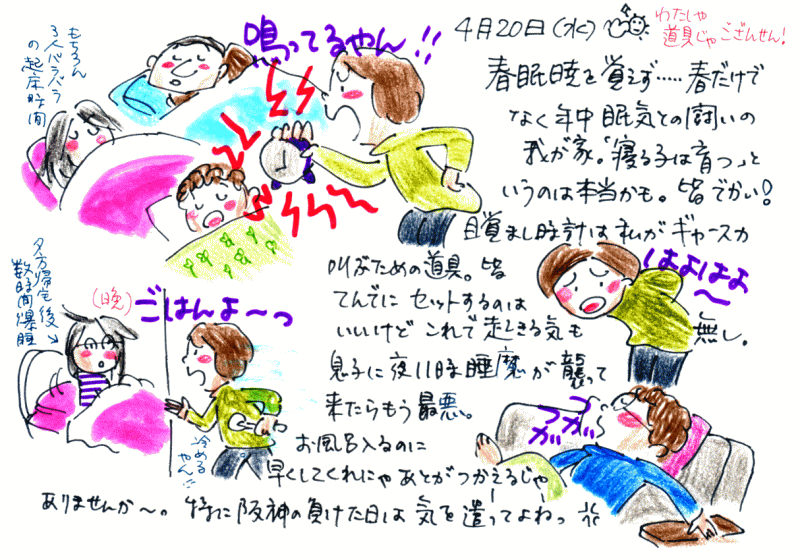 4月20日(水)
わたしゃ
道具じゃござんせん!
鳴ってるやん!!
もちろん
3人バラバラ
の起床時間
春眠暁を覚えず……春だけで
なく年中眠気との闘いの
我が家。「寝る子は育つ」と
いうのは本当かも。皆でかい!
目覚まし時計は私がギャースカ
叫ぶための道具。皆
てんでにセットするのは
いいけどこれで起きる気も
無し。
はよはよ〜
息子に夜11時睡魔が襲って
来たらもう最悪。
お風呂入るのに
早くしてくれにゃあとがつかえるじゃー
ありませんか〜。特に阪神の負けた日は気を遣ってよねっ
夕方帰宅後
数時間爆睡
(晩)
ごはんよ〜っ
冷める
やん!!
つつ
がが